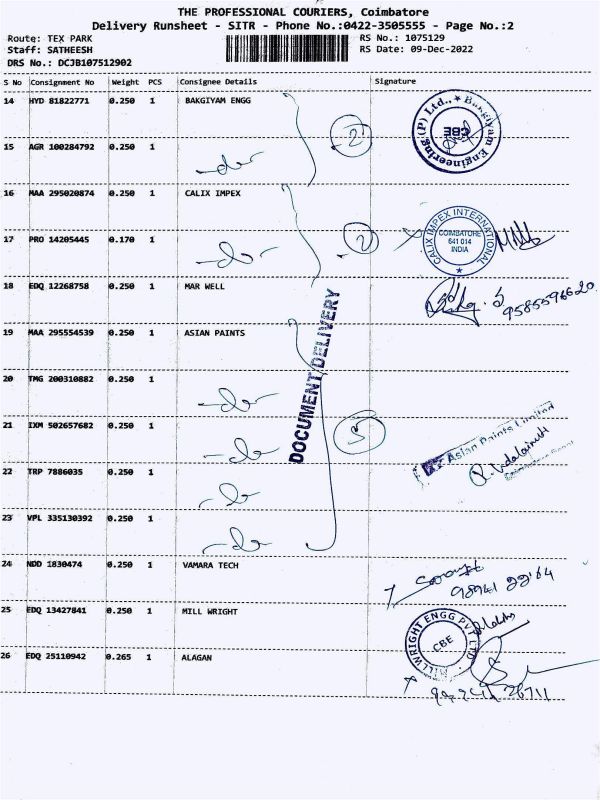 THE PROFESSIONAL COURIERS, Coimbatore
Delivery Runsheet - SITR - Phone No.:0422-3505555 - Page No.:2
Route: TEX PARK RS No.: 1075129
Staff: SATHEESH RS Date: 09-Dec-2022
DRS No.: DCJB107512902
S No Consignment No Weight PCS Consignee Details Signature
14 HYD 81822771 0.250 1 BAKGIYAM ENGG 2 Bakgiyam Engineering (P) Ltd., CBE
15 AGR 100284792 0.250 1 -do-
16 MAA 295020874 0.250 1 CALIX IMPEX
17 PRO 14205445 0.170 1 -do- 2 CALIX IMPEX INTERNATIONAL COIMBATORE 641 014 INDIA
18 EDQ 12268758 0.250 1 MAR WELL 9585596620
DOCUMENT DELIVERY
19 MAA 295554539 0.250 1 ASIAN PAINTS
20 TMG 200310882 0.250 1 -do-
21 IXM 502657682 0.250 1 -do- 5 Asian Paints Limited
22 TRP 7886035 0.250 1 -do-
23 VPL 335130392 0.250 1 -do-
24 NDD 1830474 0.250 1 VAMARA TECH 98941 22164
25 EDQ 13427841 0.250 1 MILL WRIGHT MILLWRIGHT ENGG PVT LTD CBE
26 EDQ 25110942 0.265 1 ALAGAN